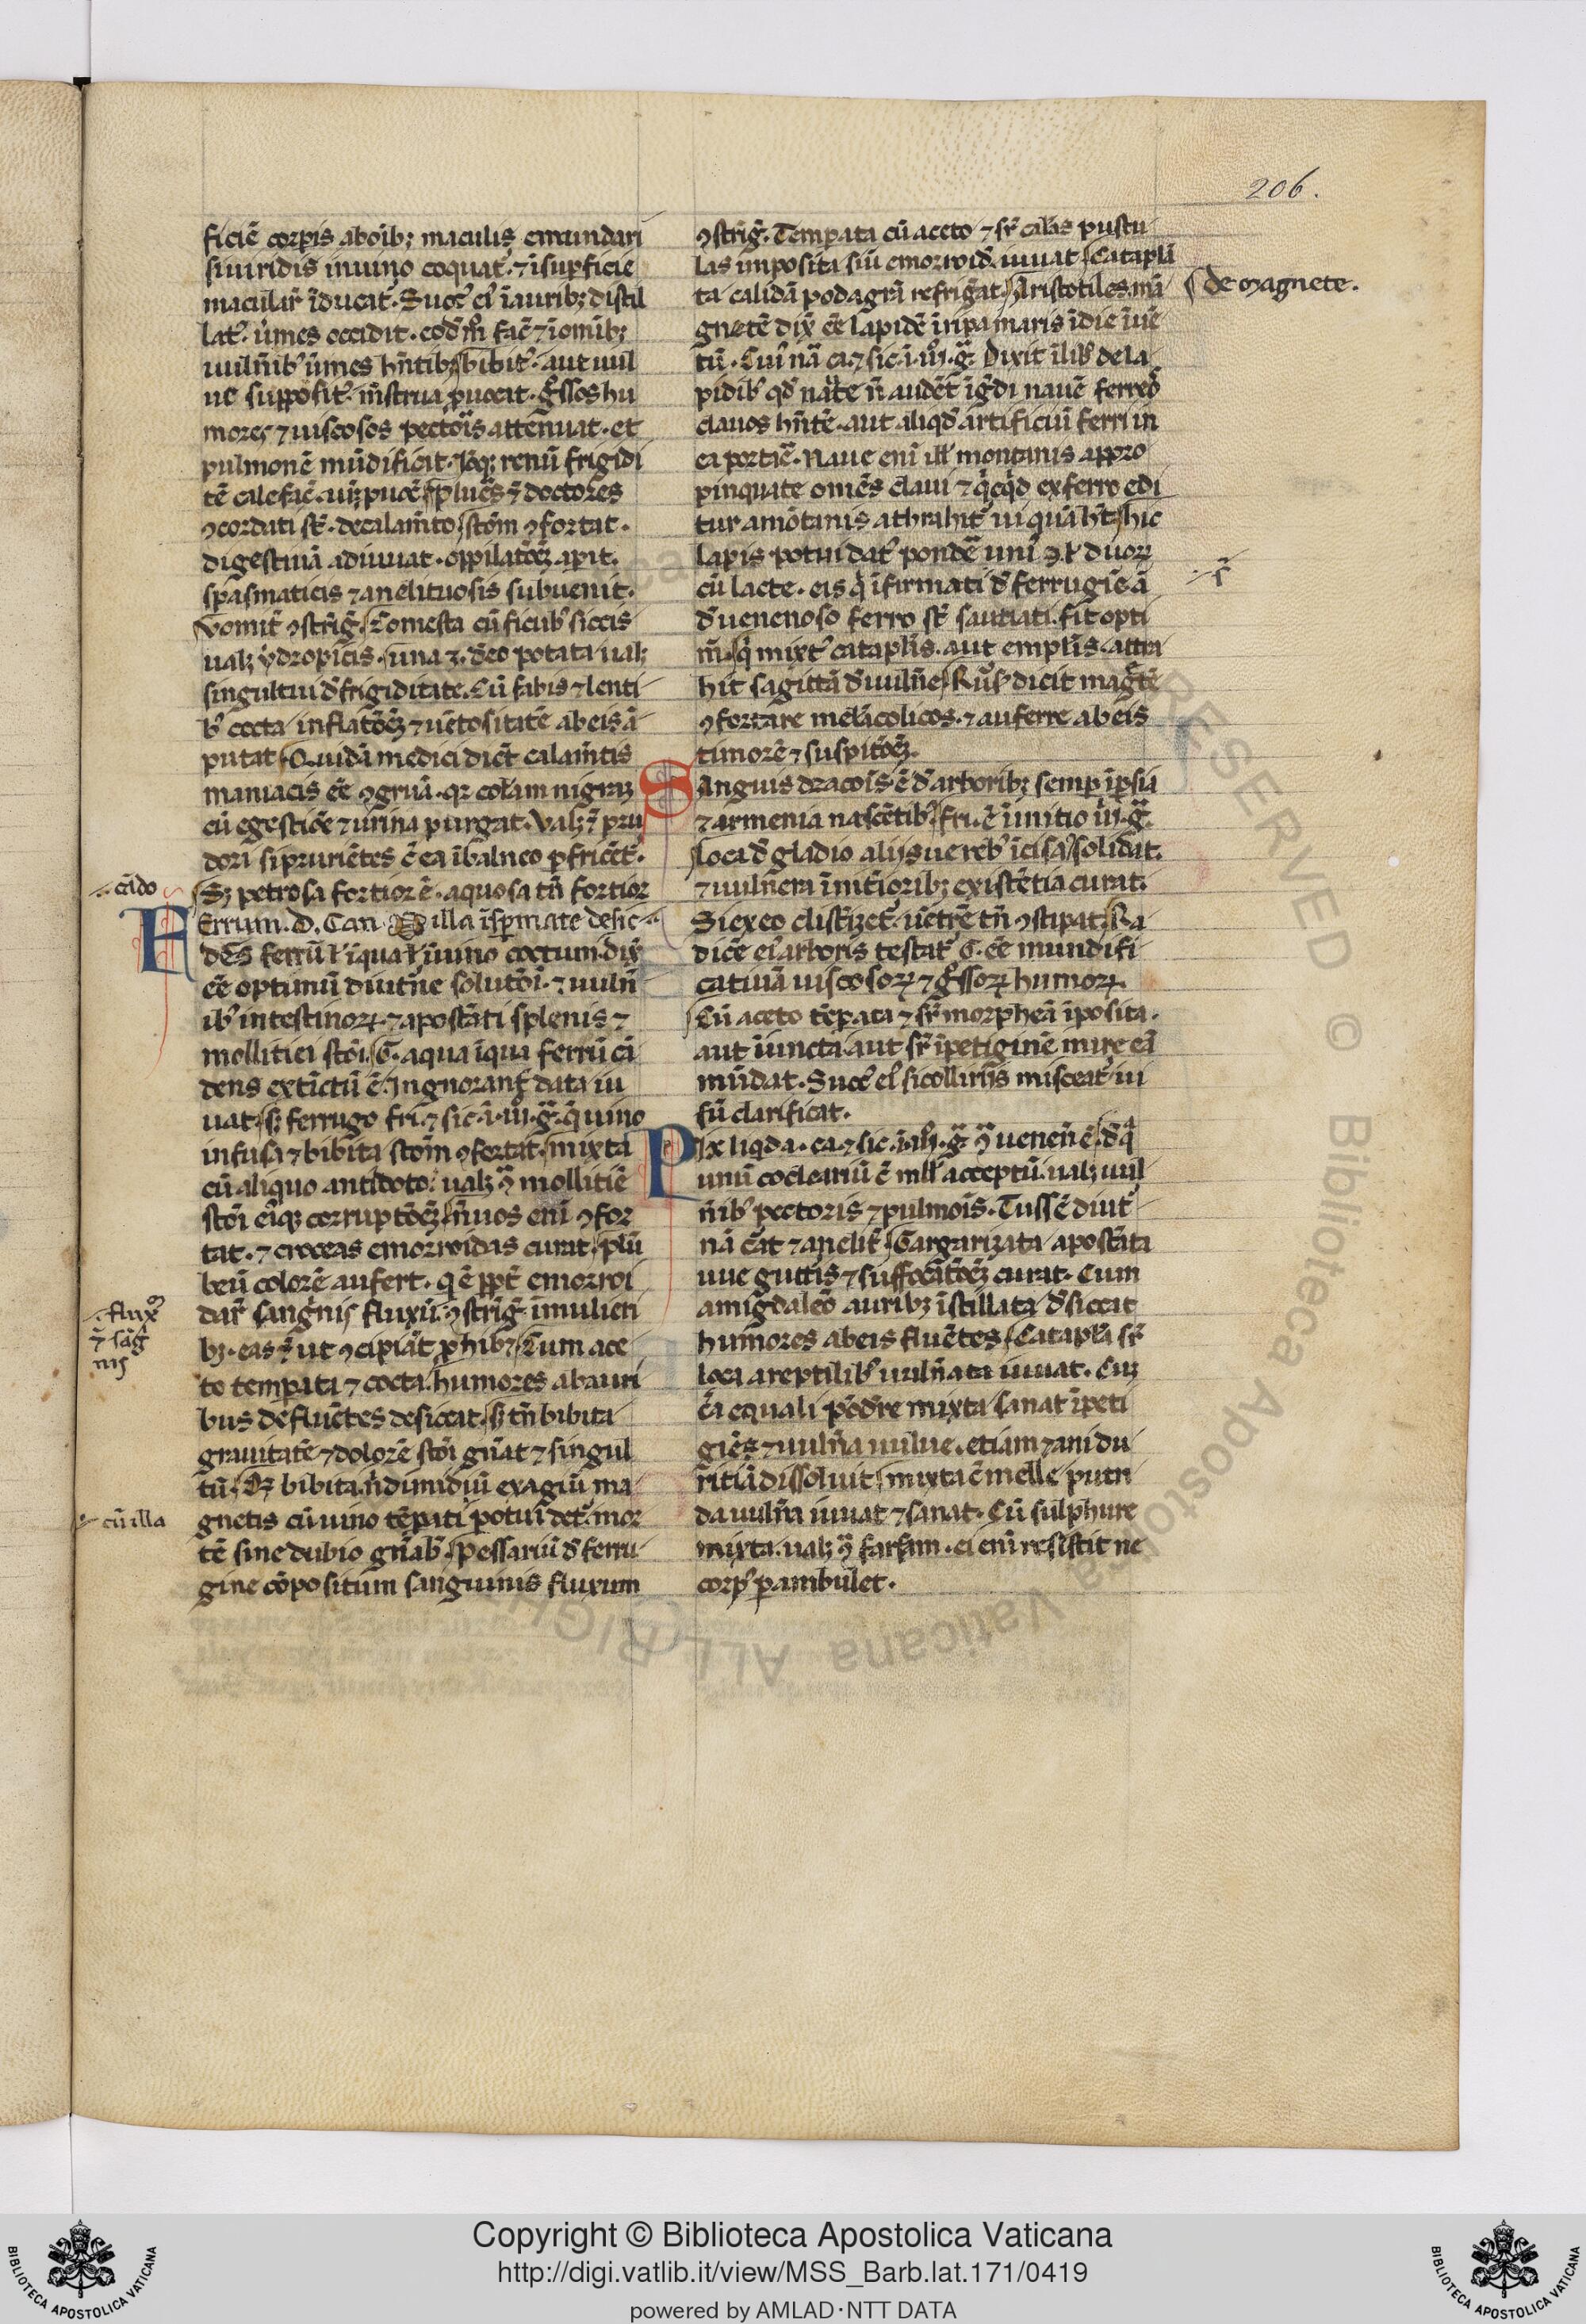 206.
ficiē corp̄is ab oīb; maculis emundari
si uiridis in uino coquat᷑. ⁊ ī sup̄ficie
macular̄ īducat᷑. Succ᷒ ei᷒ ī aurib; distil
lat᷑. u̇mes occidit. eodē mō facē ⁊ ī omīb;
uulñib᷒ u̇mes hñtib; bibit᷑. aut uul
ue supposit᷑. mēstrua ꝓuocat. g̊ssos hu
mores ⁊ uiscosos pectoīs attenuat. et
pulmonē mūdificat. renū frigidi
tē calefac̄. doctores
ꝯcordati st̄. de calamīto stōm ꝯfortat.
digestiuā adiuuat. oppilatōēȝ ap̄it.
spasmaticis ⁊ anelituosis subuenit.
Vomit̄ ꝯstrīḡ. Comesta cū ficub᷒ siccis
ualȝ ydropicis. una ʒ. deo potata ualȝ
singultui d̄ frigiditate. Cū fabis ⁊ lenti
b᷒ cocta inflatōēȝ ⁊ uētositatē ab eis ā
putat. Quidā medici dicūt calamītis
maniacis eē ꝯgruā. qr colam nigraȝ
cū egestiōe ⁊ urina purgat. Valȝ pru
dori si pruriētes c̄ ea ī balneo ꝑfricēt᷑.
Sȝ petrosa fortior ē. aquosa tn̄ fortior
cādo
Ferrum. D. Can. illa ī sp̄mate desic
dēs ferrū ł ī qua ł ī uino coctum. dix̄
eē optimū diutīne solutōī. ⁊ uulñ
ib᷒ intestinoꝝ. ⁊ apostāti splenis ⁊
mollitiei stōī. G. aqua ī qua ferrū cā
dens extīctū ē. Ingnoranf data iu
uat. sȝ ferrugo fri. ⁊ sic. ī. iij. g̊. q̄ uino
infusa ⁊ bibita stōm ꝯfortat. mixta
cū aliquo antidoto. ualȝ ꝯ̄ mollitiē
stōī ei᷒qȝ corruptōēȝ. ñuos enī ꝯfor
tat. ⁊ croceas emorroidas curat. plū
beū colorē aufert. q̄ ē ppt̄ emorroi
dar̄ sangīnis fluxū. ꝯstrīḡ ī mulieri
flux᷒
sāg̊
nis
bȝ. eas ut ꝯcipiāt ꝓhibȝ. Cum ace
to tempata ⁊ cocta. humores ab auri
bus defluētes desiccat. sȝ tn̄ bibita
grauitatē ⁊ dolorē stōī gn̄at ⁊ singul
tū. bibita. dimidiū exagiū ma
gnetis cū uino tēpati potui det᷑. mor
cū illa
tē sine dubio gn̄ab᷑. pessariū d̄ ferru
gine cōpositum sanguinis fluxum
ꝯstrīḡ. Temp̄ata cū aceto ⁊ sr̄ calidas pustu
las imposita siū emorroid̄. iuuat. Catapla
ta calidā podagrā refrig̊at. Aristotiles mā
de magnete.
gnetē dix̄ eē lapidē ī ripa maris īdie īuē
tū. Cui᷒ nā ca. ⁊ sic ī. iij. g̊. Dixit ī lib᷒ de la
pidib᷒ qd̄ naute n̄ audēt īg̊di nauē ferreos
clauos hñtē. aut aliqd̄ artificiū ferri in
ea portiē. Naue enī ill᷑ montanis appro
pinquāte omēs claui ⁊ q̇cq̇d ex ferro edi
tur a mōtanis at᷑trahit᷑ ui quā hn̄t. hic
lapis potui dat᷑ pondē uni᷒ ł duoꝝ
cū lacte. eis q̇ īfirmati d̄ ferrugīe ā
d̄ uenenoso ferro st̄ sauciati. fit opti
m̄. q̇ mixt᷒ cataplīs. aut emplīs. attra
hit sagittā d̄ uulñe. Ruf᷒ dicit magtē
ꝯfortare melācolicos. ⁊ auferre ab eis
timorē ⁊ suspitōēȝ.
Sanguis dracoīs ē d̄ arborib; semp̄ ī p̄sia
⁊ armenia nascētib᷒. fri. ē ī initio iij. g̊.
Loca d̄ gladio alijsue reb᷒ īcisa solidat.
⁊ uulñera ī inītiorib; existētia curat.
Si ex eo clistizet᷑. uētrē tn̄ ꝯstipat. Ra
dicē ei᷒ arboris testat᷑ G. eē mundifi
catiuā uiscosoꝝ ⁊ g̊ssoꝝ humoꝝ.
Cū aceto tēp̄ata ⁊ sr̄ morpheā īposita.
aut iuncta. aut sr̄ īpetiginē mire eā
mūdat. Succ᷒ ei᷒ si collirijs misceat᷑ ui
sū clarificat.
Pix liqda. ca. ⁊ sic. ī. iij. g̊. ꝯ̄ uenenū ē. d̄ q̄
unū cocleariū c̄ mll᷑ acceptū. ualȝ uul
nib᷒ pectoris ⁊ pulmoīs. Tussē diut᷑
nā c̄at ⁊ anelit̄. Gargarizata apostāta
uue guttis ⁊ suffocatōēȝ curat. Cum
amigdaleo aurib; īstillata d̄siccat
humores ab eis fluētes. Catapla sr̄
loca a reptilib᷒ uulñata iuuat. Cuȝ
c̄a equali pōdere mixta sanat īpeti
giēs ⁊ uulña uulue. etiam ⁊ ani du
ritiā dissoluit. mixta c̄ melle putri
da uulña iuuat ⁊ sanat. Cū sulphure
mixta. ualȝ ꝯ̄ farfam. ei enī resistit ne
corp᷒ ꝑambulet.
Copyright © Biblioteca Apostolica Vaticana
http://digi.vatlib.it/view/MSS_Barb.lat.171/0419
powered by AMLAD·NTT DATA
BIBLIOTECA APOSTOLICA VATICANA
BIBLIOTECA APOSTOLICA VATICANA